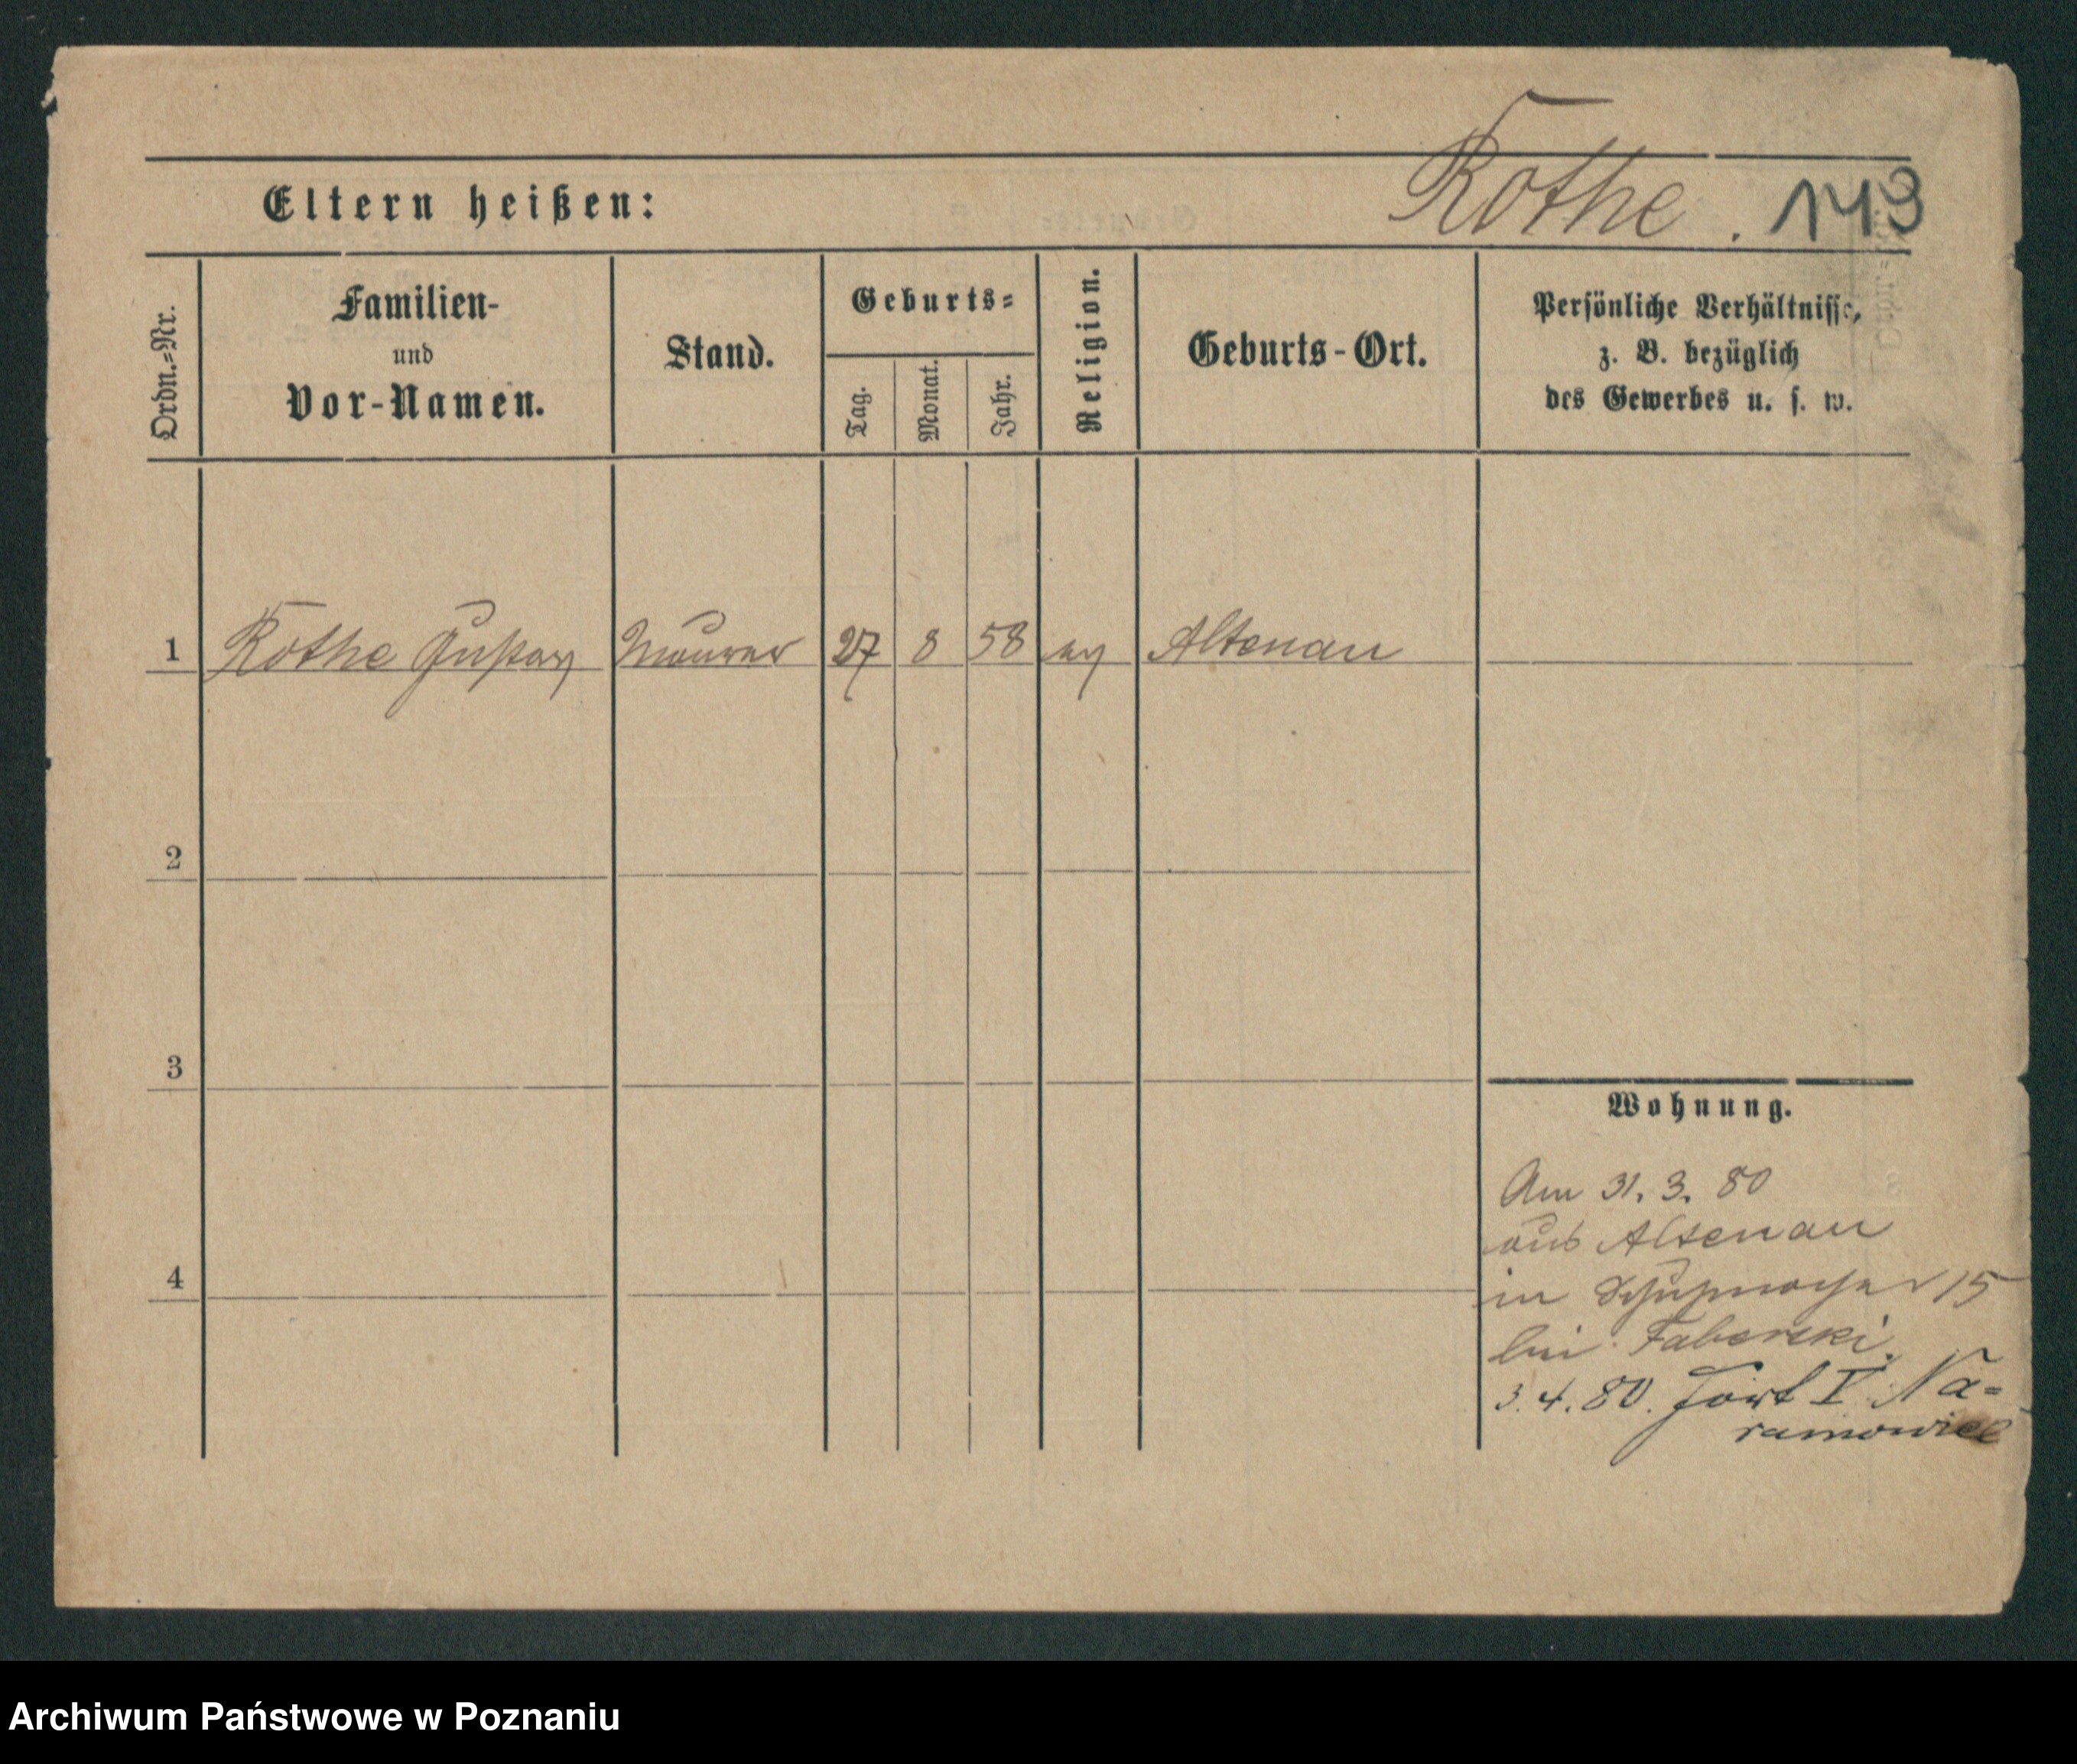 Rothe . 143
Eltern heißen:
Ordn.=Nr.
Familien-
und
Vor-Namen.
Stand.
Geburts=
Tag.
Monat.
Jahr.
Religion.
Geburts-Ort.
Persönliche Verhältnisse,
z. B. bezüglich
des Gewerbes u. s. w.
1 Rothe Gustav Maurer 27 8 58 ev Altenau
2
3
4
Wohnung.
Am 31. 3. 80
aus Altenau
in Schuhmacher 15
bei
3. 4. 80. Fort V Na=
ramowice
Archiwum Państwowe w Poznaniu